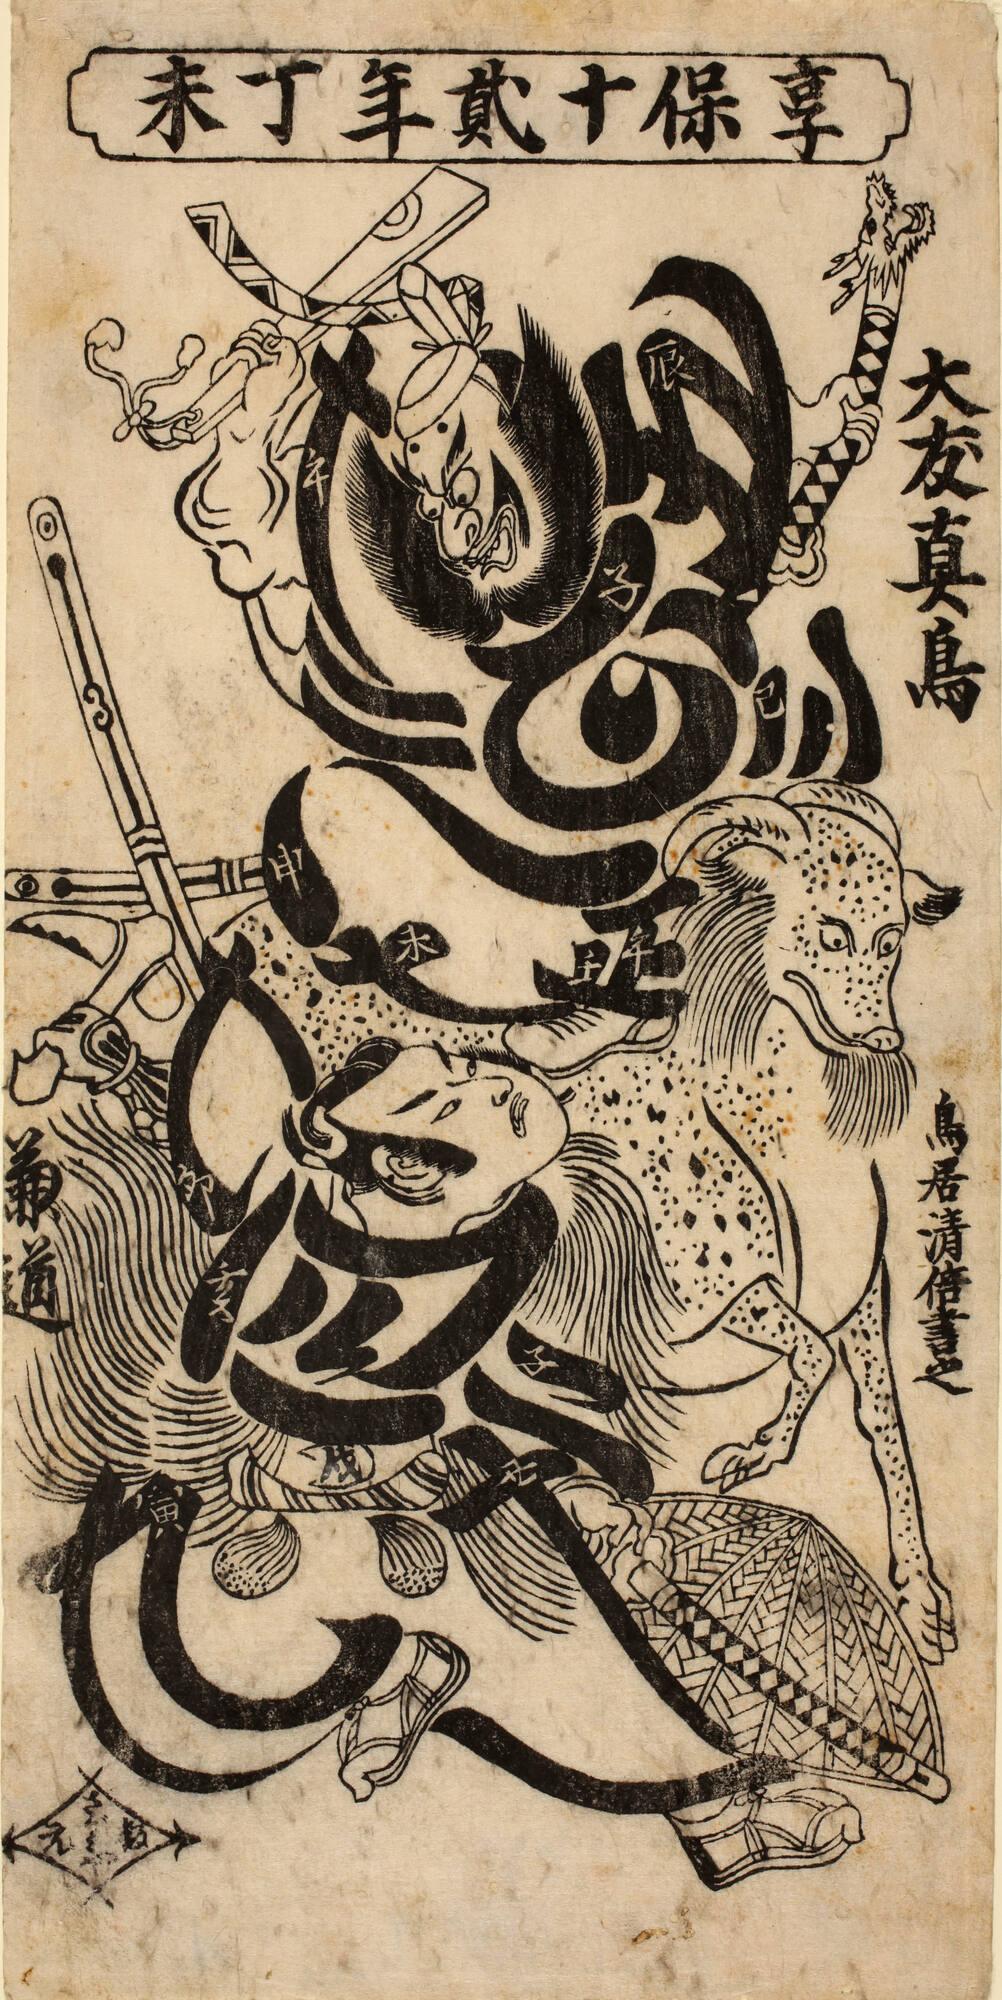 享保十貳年丁未
大友真鳥
鳥居清倍書之
兼道
辰
午
子
巳
申
未
壬
午
卯
亥
子
戌
寅
元